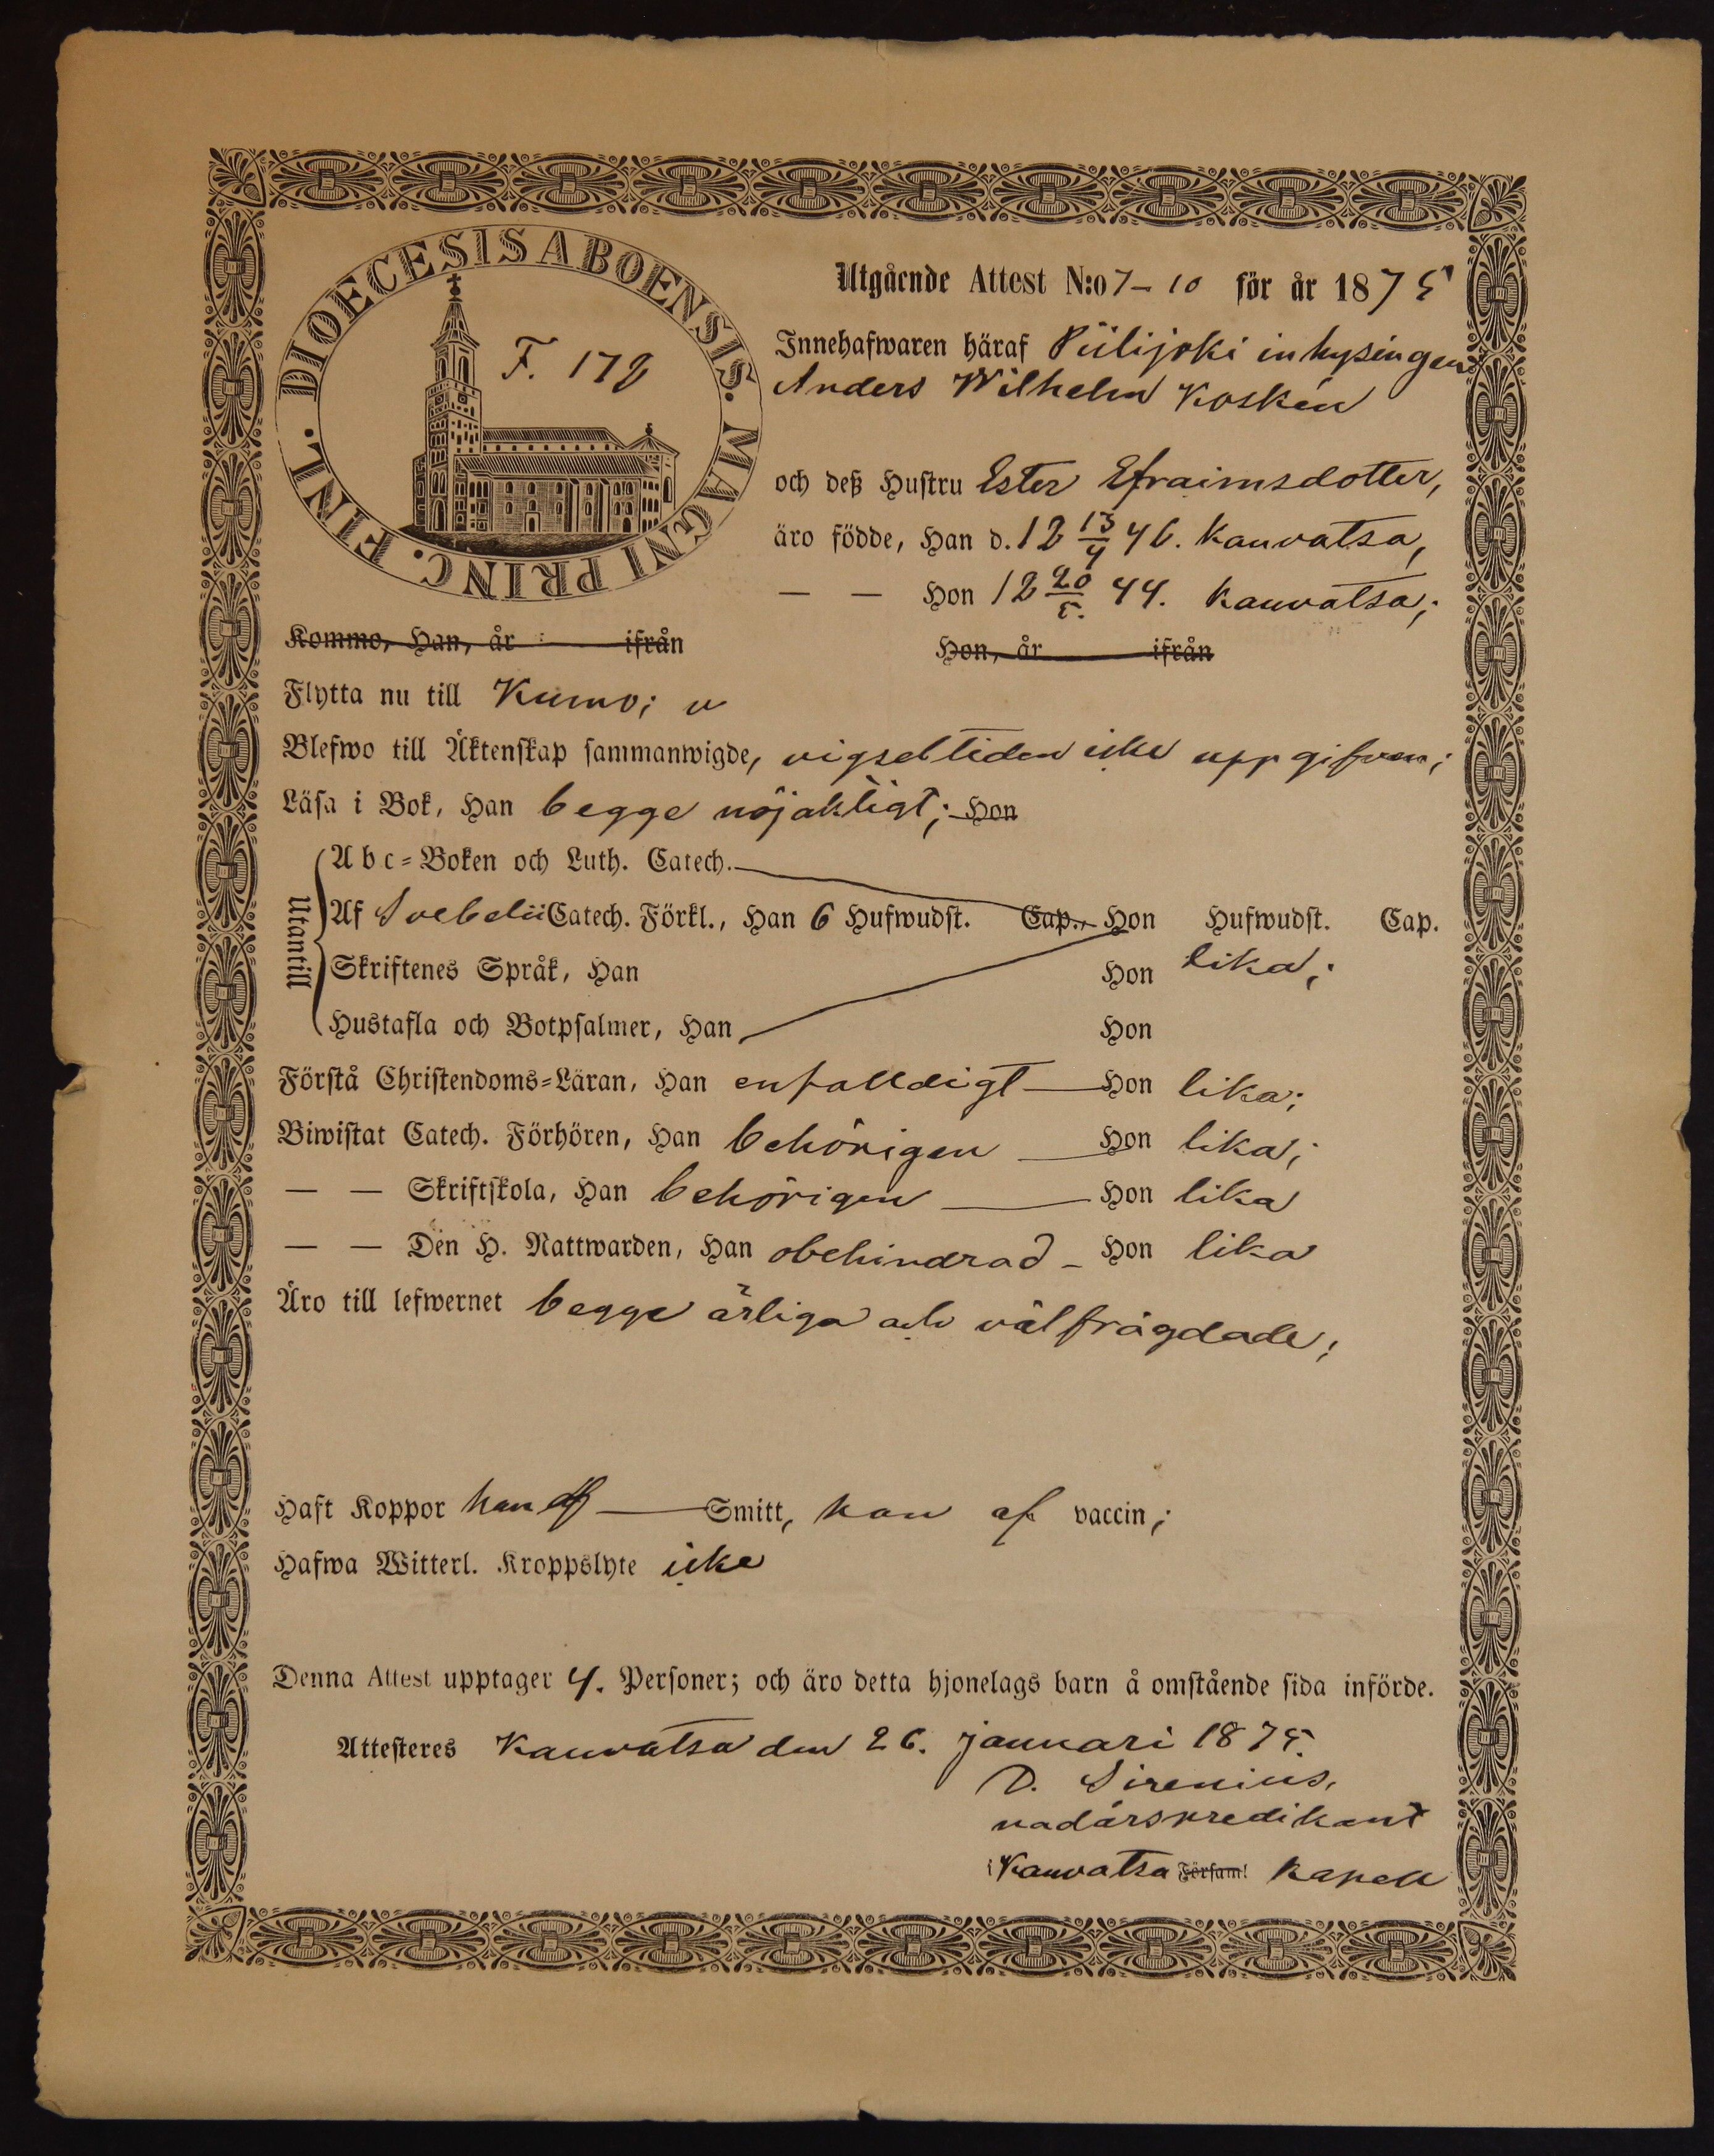 DIOECESIS ABOENSIS. MAGNI PRINC. FINL.
F. 178
Utgående Attest N:o 7-10 för år 1875
Innehafwaren häraf Piilijoki inhysingen
Anders Wilhelm Koskén
och deß Hustru Ester Efraimsdotter,
äro födde, Han d. 18 13/4 46. Kauvatsa,
— — Hon 18 20/5. 44. Kauvatsa;
Kommo, Han, år ifrån Hon, år ifrån
Flytta nu till Kumo;
Blefwo till Äktenskap sammanwigde, vigseltiden icke uppgifven;
Läsa i Bok, Han begge nöjaktigt; Hon
Utantill
Abc-Boken och Luth. Catech.
Af Svebelii Catech. Förkl., Han 6 Hufwudst. Cap., Hon Hufwudst. Cap.
Skriftenes Språk, Han Hon lika;
Hustafla och Botpsalmer, Han Hon
Förstå Christendoms-Läran, Han enfalldigt Hon lika;
Biwistat Catech. Förhören, Han behörigen Hon lika;
— — Skriftskola, Han behörigen Hon lika
— — Den H. Nattwarden, Han obehindrad Hon lika
Äro till lefwernet begge ärliga och välfrägdade;
Haft Koppor han af Smitt, hon af vaccin;
Hafwa Witterl. Kroppslyte icke
Denna Attest upptager 4. Personer; och äro detta hjonelags barn å omstående sida införde.
Attesteres Kauvatsa den 26. januari 1875.
D. Sirenius,
nådårspredikant
i Kauvatsa Församl Kapell